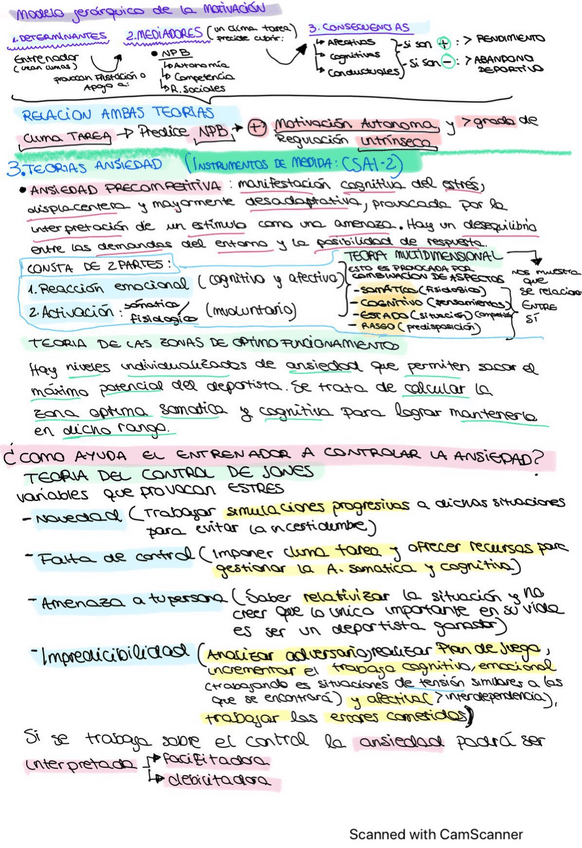 Modelo jerárquico de la Motivación
1. DETERMINANTES
Entrenador
(crean climas)
provocan frustración o
Apoyo a:
2. MEDIADORES (un clima tarea)
predice cubrir:
• NPB
↳ Autonomía
↳ Competencia
↳ R. Sociales
3. CONSECUENCIAS
↳ Afectivas
↳ Cognitivas
↳ Conductuales
- Si son + : > RENDIMIENTO
- Si son - : > ABANDONO
DEPORTIVO
RELACION AMBAS TEORIAS
Clima TAREA → Predice NPB → (+) Motivación Autonoma y > grado de
Regulación intrínseca
3. TEORIAS ANSIEDAD (INSTRUMENTOS DE MEDIDA: (SAI-2)
• ANSIEDAD PRECOMPETITIVA : manifestación cognitiva del estrés,
displacentera y mayormente desadaptativa, provocada por la
interpretación de un estímulo como una amenaza. Hay un desequilibrio
entre las demandas del entorno y la posibilidad de respuesta.
CONSTA DE 2 PARTES:
1. Reacción emocional (cognitivo y afectivo)
2. Activación: somática/
fisiológica (involuntario)
TEORIA MULTIDIMENSIONAL
ESTO ES PROVOCADA POR
COMBINACION DE ASPECTOS
- SOMÁTICO (Fisiológico)
- COGNITIVO (pensamientos)
- ESTADO (situación)
- RASGO (predisposición)
NOS MUESTRA
QUE
SE RELACIO
ENTRE
SÍ
TEORIA DE LAS ZONAS DE OPTIMO FUNCIONAMIENTO
Hay niveles individualizados de ansiedad que permiten sacar el
máximo potencial del deportista. Se trata de calcular la
zona optima somatica y cognitiva para lograr mantenerlo
en dicho rango.
¿COMO AYUDA EL ENTRENADOR A CONTROLAR LA ANSIEDAD?
TEORIA DEL CONTROL DE JONES
variables que provocan ESTRES
- Novedad (Trabajar simulaciones progresivas a dichas situaciones
para evitar la incertidumbre)
- Falta de control (Imponer clima tarea y ofrecer recursos para
gestionar la A. somatica y cognitiva)
- Amenaza a tu persona (Saber relativizar la situación y no
creer que lo único importante en su vida
es ser un deportista ganador)
- Impredicibilidad (Analizar adversario, realizar Plan de Juego,
incrementar el trabajo cognitivo, emocional
(trabajando es situaciones de tensión similares a las
que se encontrará) y afectiva (> interdependencia),
trabajar los errores cometidos)
Si se trabaja sobre el control la ansiedad podrá ser
interpretada ↱ Facilitadora
↳ debilitadora
Scanned with CamScanner